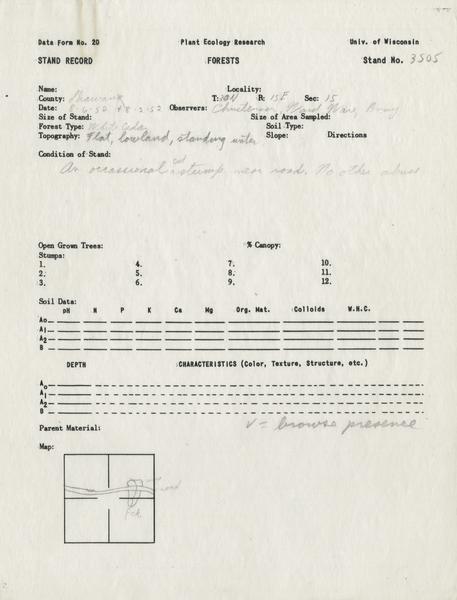 Data Form No. 20 Plant Ecology Research Univ. of Wisconsin
STAND RECORD FORESTS Stand No. 3505
Name: Locality:
County: Shawano T: 30N R: 15E Sec: 15
Date: 8-6-52 +8-12-52 Observers: Christensen, Ward, Ware, Bray
Size of Stand: Size of Area Sampled:
Forest Type: White Cedar Soil Type:
Topography: Flat, lowland, standing water Slope: Directions
Condition of Stand:
An occassional cut stump near road. No other abuse
Open Grown Trees: % Canopy:
Stumps:
1. 4. 7. 10.
2. 5. 8. 11.
3. 6. 9. 12.
Soil Data:
pH N P K Ca Mg Org. Mat. Colloids W.H.C.
Ao
A1
A2
B
DEPTH CHARACTERISTICS (Color, Texture, Structure, etc.)
Ao
A1
A2
B
Parent Material: v = browse presence
Map:
road